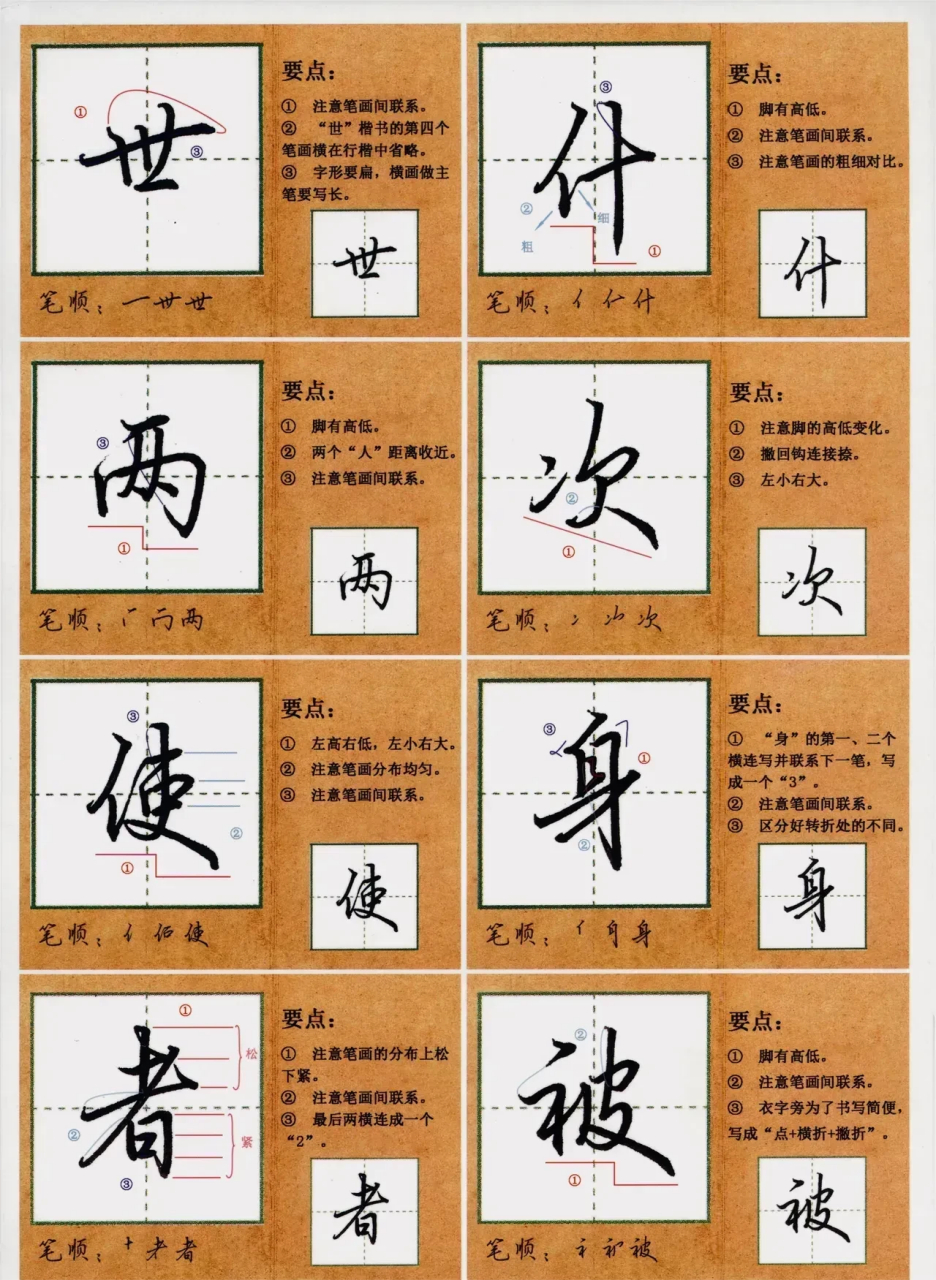 世
①
③
要点：
① 注意笔画间联系。
② “世”楷书的第四个
笔画横在行楷中省略。
③ 字形要扁，横画做主
笔要写长。
世
笔顺：一 世 世
什
③
②
细
粗
①
要点：
① 脚有高低。
② 注意笔画间联系。
③ 注意笔画的粗细对比。
什
笔顺：亻 什
两
③
①
要点：
① 脚有高低。
② 两个“人”距离收近。
③ 注意笔画间联系。
两
笔顺：两
次
②
①
要点：
① 注意脚的高低变化。
② 撇回钩连接捺。
③ 左小右大。
次
笔顺：冫 次
使
③
②
①
要点：
① 左高右低，左小右大。
② 注意笔画分布均匀。
③ 注意笔画间联系。
使
笔顺：亻 使
身
③
①
②
要点：
① “身”的第一、二个
横连写并联系下一笔，写
成一个“3”。
② 注意笔画间联系。
③ 区分好转折处的不同。
身
笔顺：身
者
①
松
②
紧
③
要点：
① 注意笔画的分布上松
下紧。
② 注意笔画间联系。
③ 最后两横连成一个
“2”。
者
笔顺：十 耂 者
被
②
①
要点：
① 脚有高低。
② 注意笔画间联系。
③ 衣字旁为了书写简便，
写成“点+横折+撇折”。
被
笔顺：被